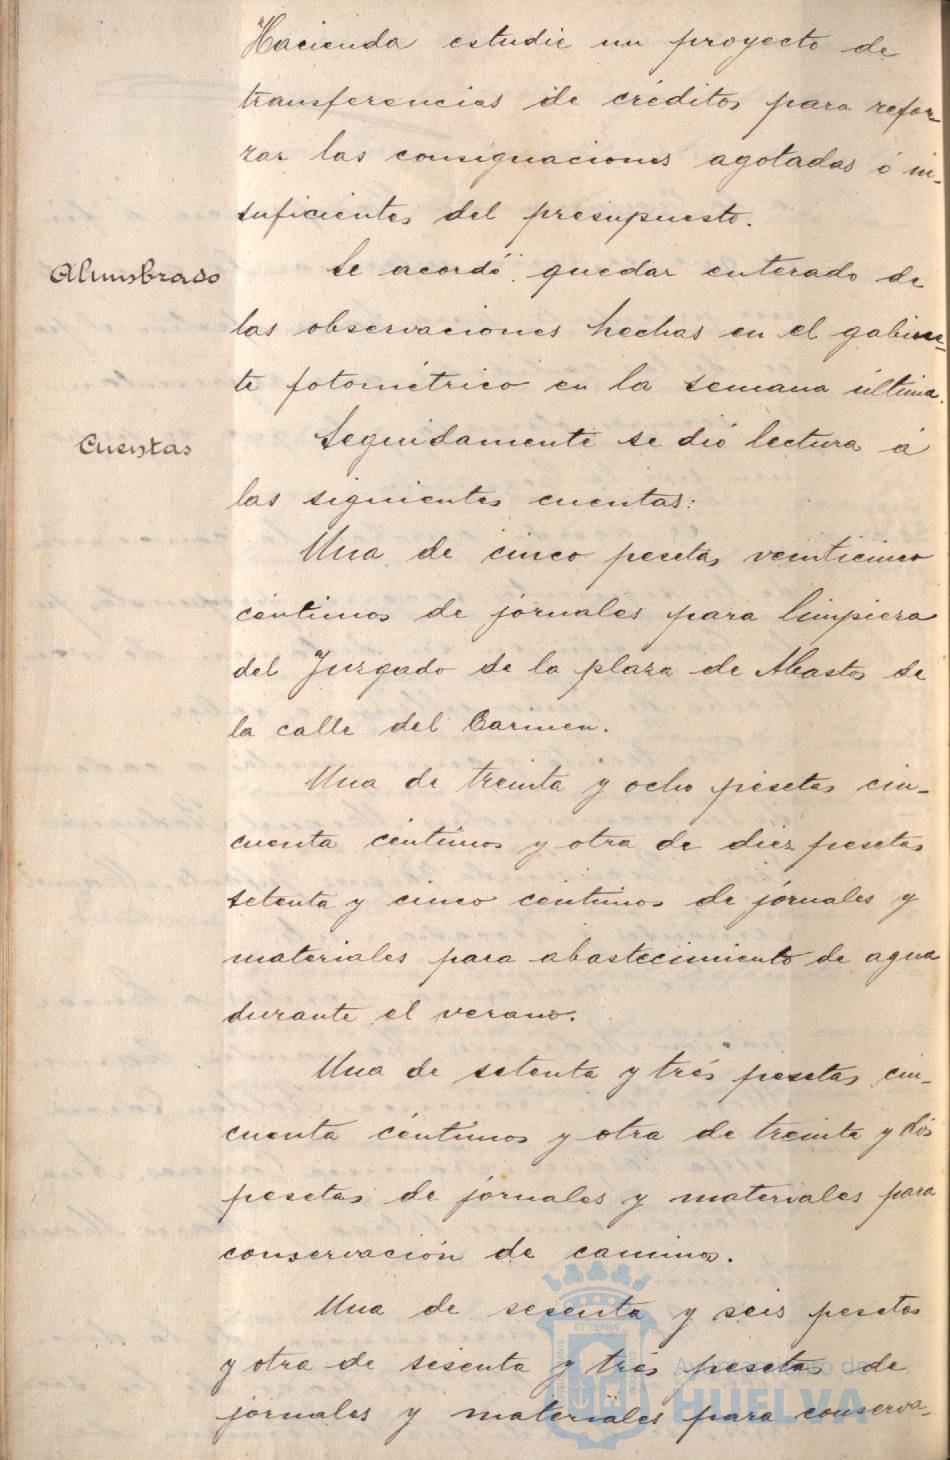 Hacienda estudie un proyecto de
transferencias de créditos para refor-
zar las consignaciones agotadas ó in-
suficientes del presupuesto.
Alumbrado
Se acordó quedar enterado de
las observaciones hechas en el gabine-
te fotométrico en la semana última.
Cuentas
Seguidamente se dió lectura á
las siguientes cuentas:
Una de cinco pesetas veinticinco
céntimos de jornales para limpieza
del Juzgado de la plaza de Abastos de
la calle del Carmen.
Una de treinta y ocho pesetas cin-
cuenta céntimos y otra de diez pesetas
setenta y cinco céntimos de jornales y
materiales para abastecimiento de agua
durante el verano.
Una de setenta y trés pesetas cin-
cuenta céntimos y otra de treinta y dós
pesetas de jornales y materiales para
conservación de caminos.
Una de sesenta y seis pesetas
y otra de sesenta y trés pesetas de
jornales y materiales para conserva-
Ayuntamiento de
HUELVA